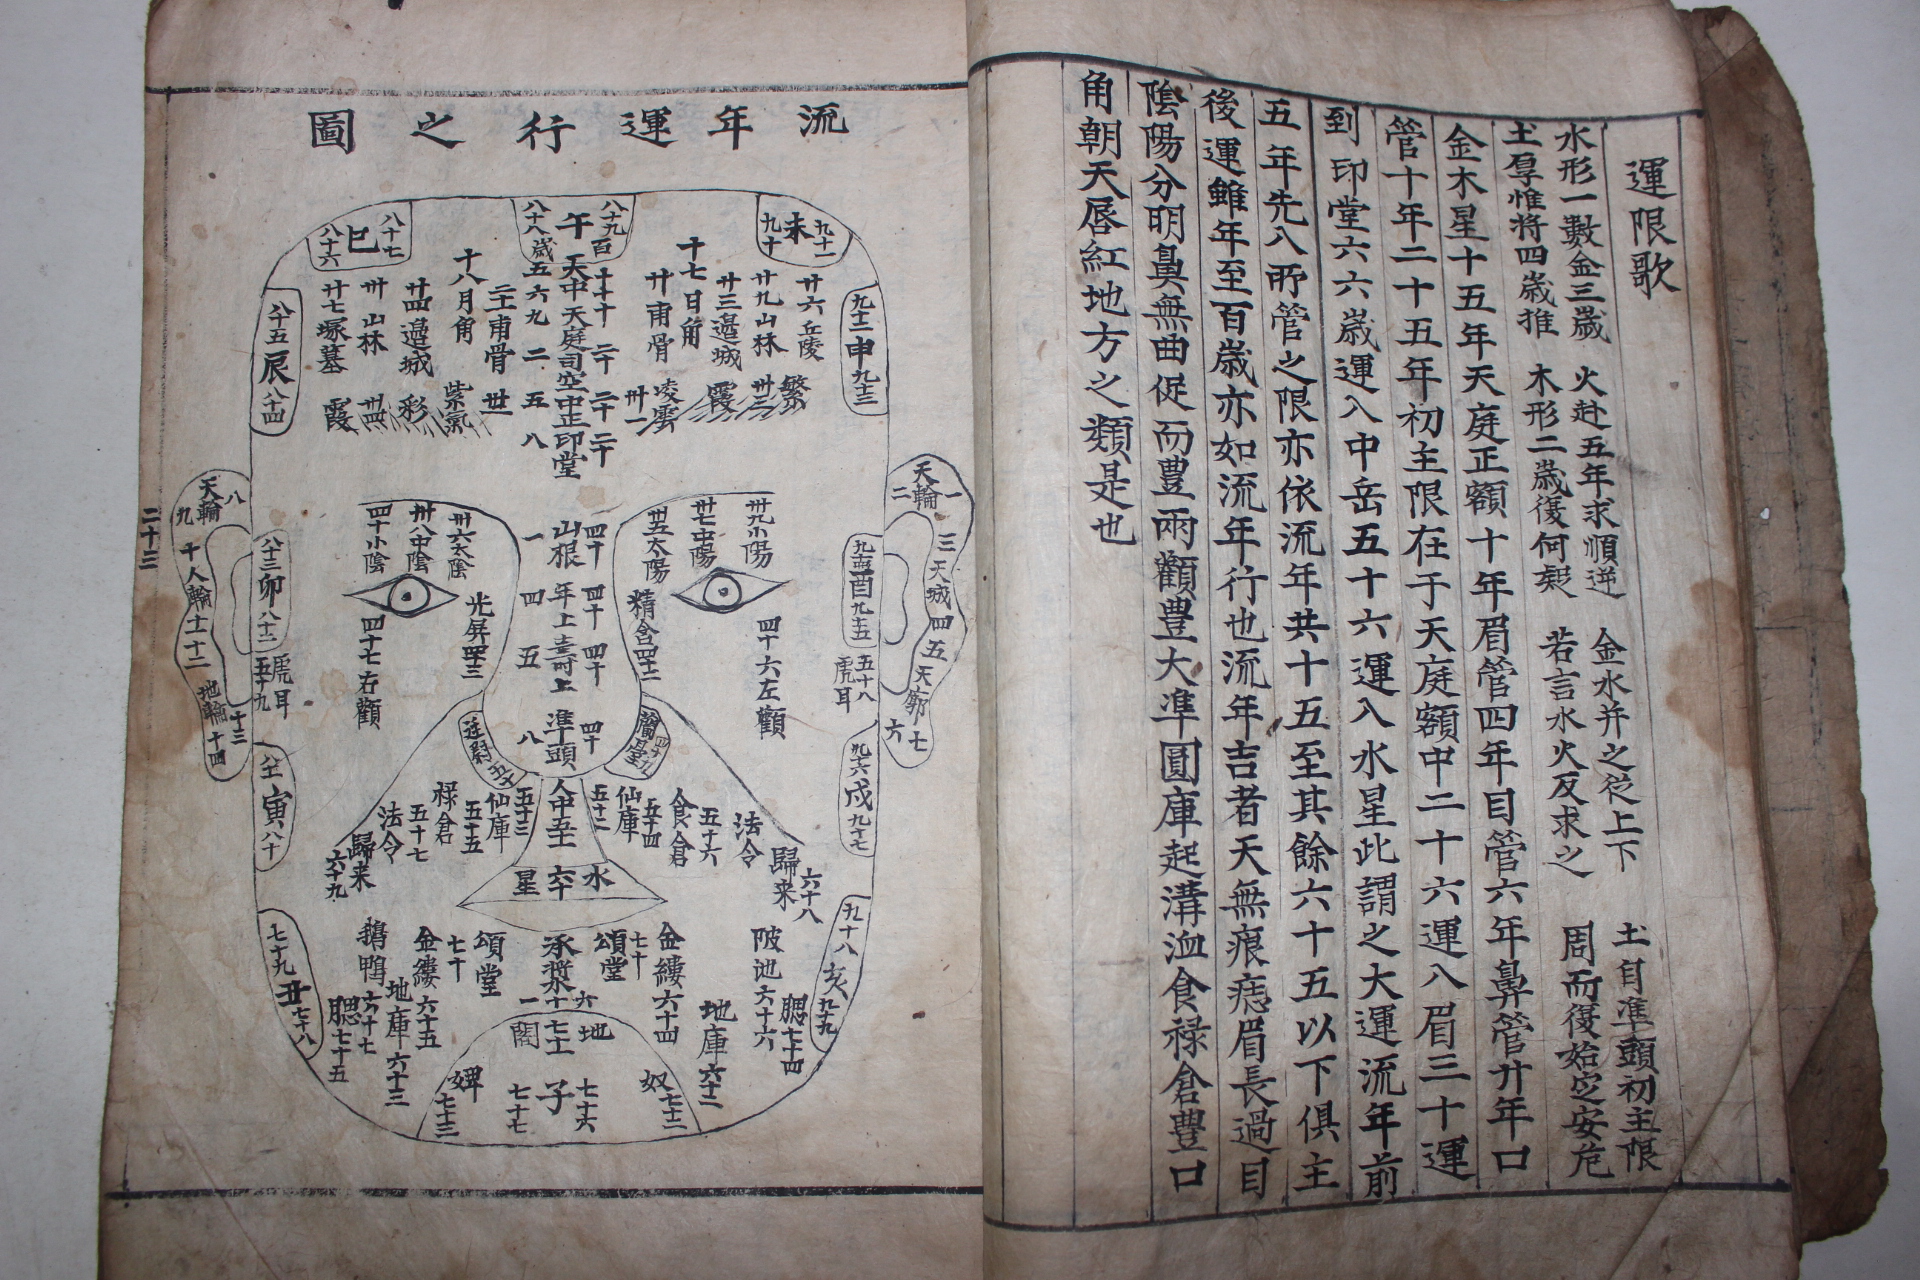 運限歌
水形一數金三歲 火赴五年求順逆 金水并之從上下 土自準頭初主限
土厚惟將四歲推 木形二歲復何疑 若言水火反求之 周而復始定安危
金木星十五年天庭正額十年眉管四年目管六年鼻管廾年口
管十年二十五年初主限在于天庭額中二十六運八眉三十運
到印堂六六歲運入中岳五十六運入水星此謂之大運流年前
五年先八所管之限亦依流年共十五至其餘六十五以下俱主
後運雖年至百歲亦如流年行也流年吉者天無痕痣眉長過目
陰陽分明鼻無曲促而豊兩顴豊大準圓庫起溝洫食禄倉豊口
角朝天唇紅地方之類是也
流年運行之圖
九十一
未
九十
八十九
午
八十八歲
八十七
巳
八十六
廾六丘陵
廾九山林
廾三邊城
十七日角
廾甫骨
天中天庭司空中正印堂
十八月角
廾四邊城
卅山林
廾七塚墓
繁
卅三
霞
凌雲
卅一
紫氣
彩
卅四
霞
九十二申九十三
八十五辰八十四
天輪
一
二
三天城四五天廓六七
天輪
八
九
十人輪十一十二地輪十三十四
卅九少陽
卅七中陽
卅五太陽
山根
年上壽上
準頭
卅六太陰
卅八中陰
四十少陰
精舍四十二
光屏四十三
四十六左顴
四十七右顴
酉九十五
八十三卯八十二
五十八
虎耳
虎耳
五十九
九十六戌九十七
寅八十
法令
五十六
食倉
五十四
仙庫
五十二
人中五十一
五十三
仙庫
五十五
禄倉
五十七
法令
六十八
歸来
歸来
六十九
水
六十
星
九十八亥九十九
七十九丑七十八
陂池六十六
腮七十四
地庫六十二
金縷六十四
七十
頌堂
承漿六十一
頌堂
七十
金縷六十五
地庫六十三
鵝鴨六十七
腮七十五
地
七十一
閣
奴七十二
七十六
子
七十七
婢七十三
二十三